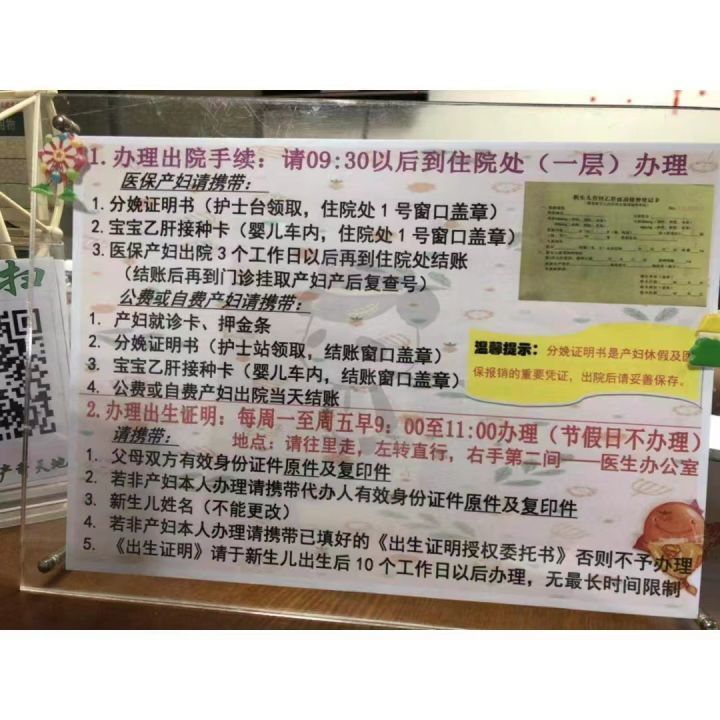 1.办理出院手续：请09:30以后到住院处（一层）办理
医保产妇请携带：
1. 分娩证明书（护士台领取，住院处1号窗口盖章）
2. 宝宝乙肝接种卡（婴儿车内，住院处1号窗口盖章）
3. 医保产妇出院3个工作日以后再到住院处结账
（结账后再到门诊挂取产妇产后复查号）
公费或自费产妇请携带：
1. 产妇就诊卡、押金条
2. 分娩证明书（护士站领取，结账窗口盖章）
3. 宝宝乙肝接种卡（婴儿车内，结账窗口盖章）
4. 公费或自费产妇出院当天结账
温馨提示：分娩证明书是产妇休假及医
保报销的重要凭证，出院后请妥善保存。
2.办理出生证明：每周一至周五早9：00至11:00办理（节假日不办理）
请携带：
地点：请往里走，左转直行，右手第二间——医生办公室
1. 父母双方有效身份证件原件及复印件
2. 若非产妇本人办理请携带代办人有效身份证件原件及复印件
3. 新生儿姓名（不能更改）
4. 若非产妇本人办理请携带已填好的《出生证明授权委托书》否则不予办理
5. 《出生证明》请于新生儿出生后10个工作日以后办理，无最长时间限制
扫